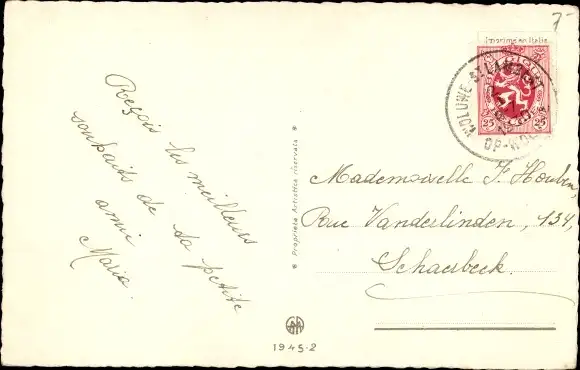 7-
Imprimé en Italie
BELGIQUE
25 25
WOLUWE-ST LAMBERT
OP-WOL
Reçois les meilleurs
souhaits de ta petite
amie
Maria.
* Proprieta Artistica riservata *
Mademoiselle J. Houben,
Rue Vanderlinden, 134,
Schaerbeek.
1945-2